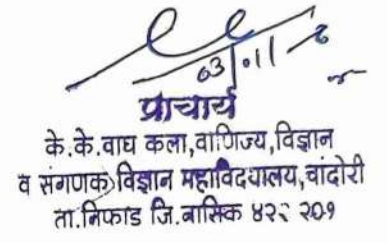 03/11/
प्राचार्य
के.के.वाघ कला,वाणिज्य,विज्ञान
व संगणक विज्ञान महाविदयालय,चांदोरी
ता.निफाड जि.नासिक ४२२ २०१